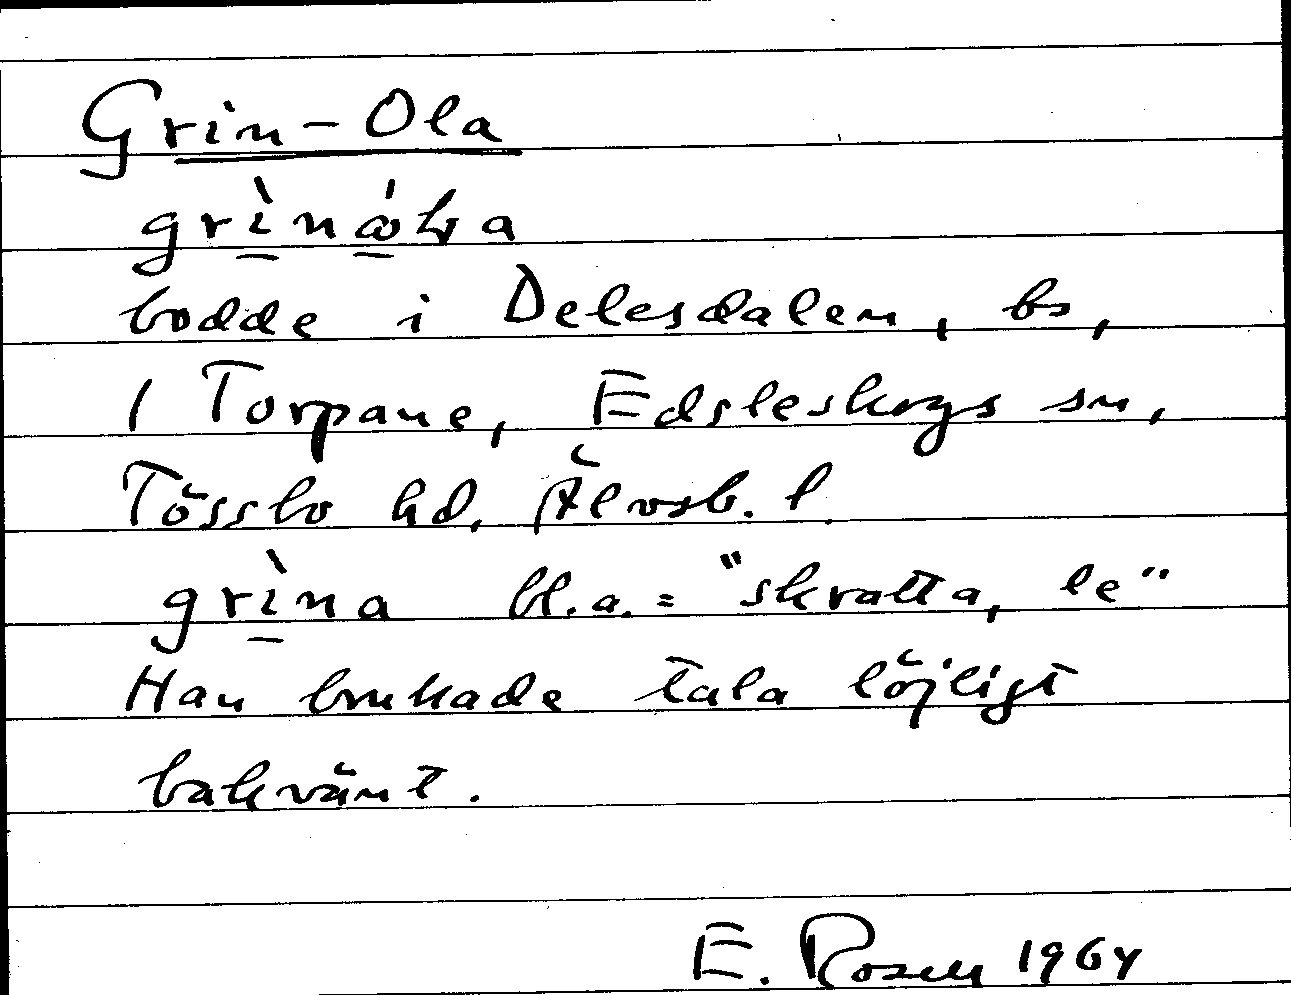 Grin-Ola
grìnǻla
bodde i Delesdalen, bs,
1 Torpane, Edsleskogs sn,
Tössbo hd. Älvsb. l.
grìna bl.a. = "skratta, le"
Han brukade tala löjligt
bakvänt.
E. Rosen 1964